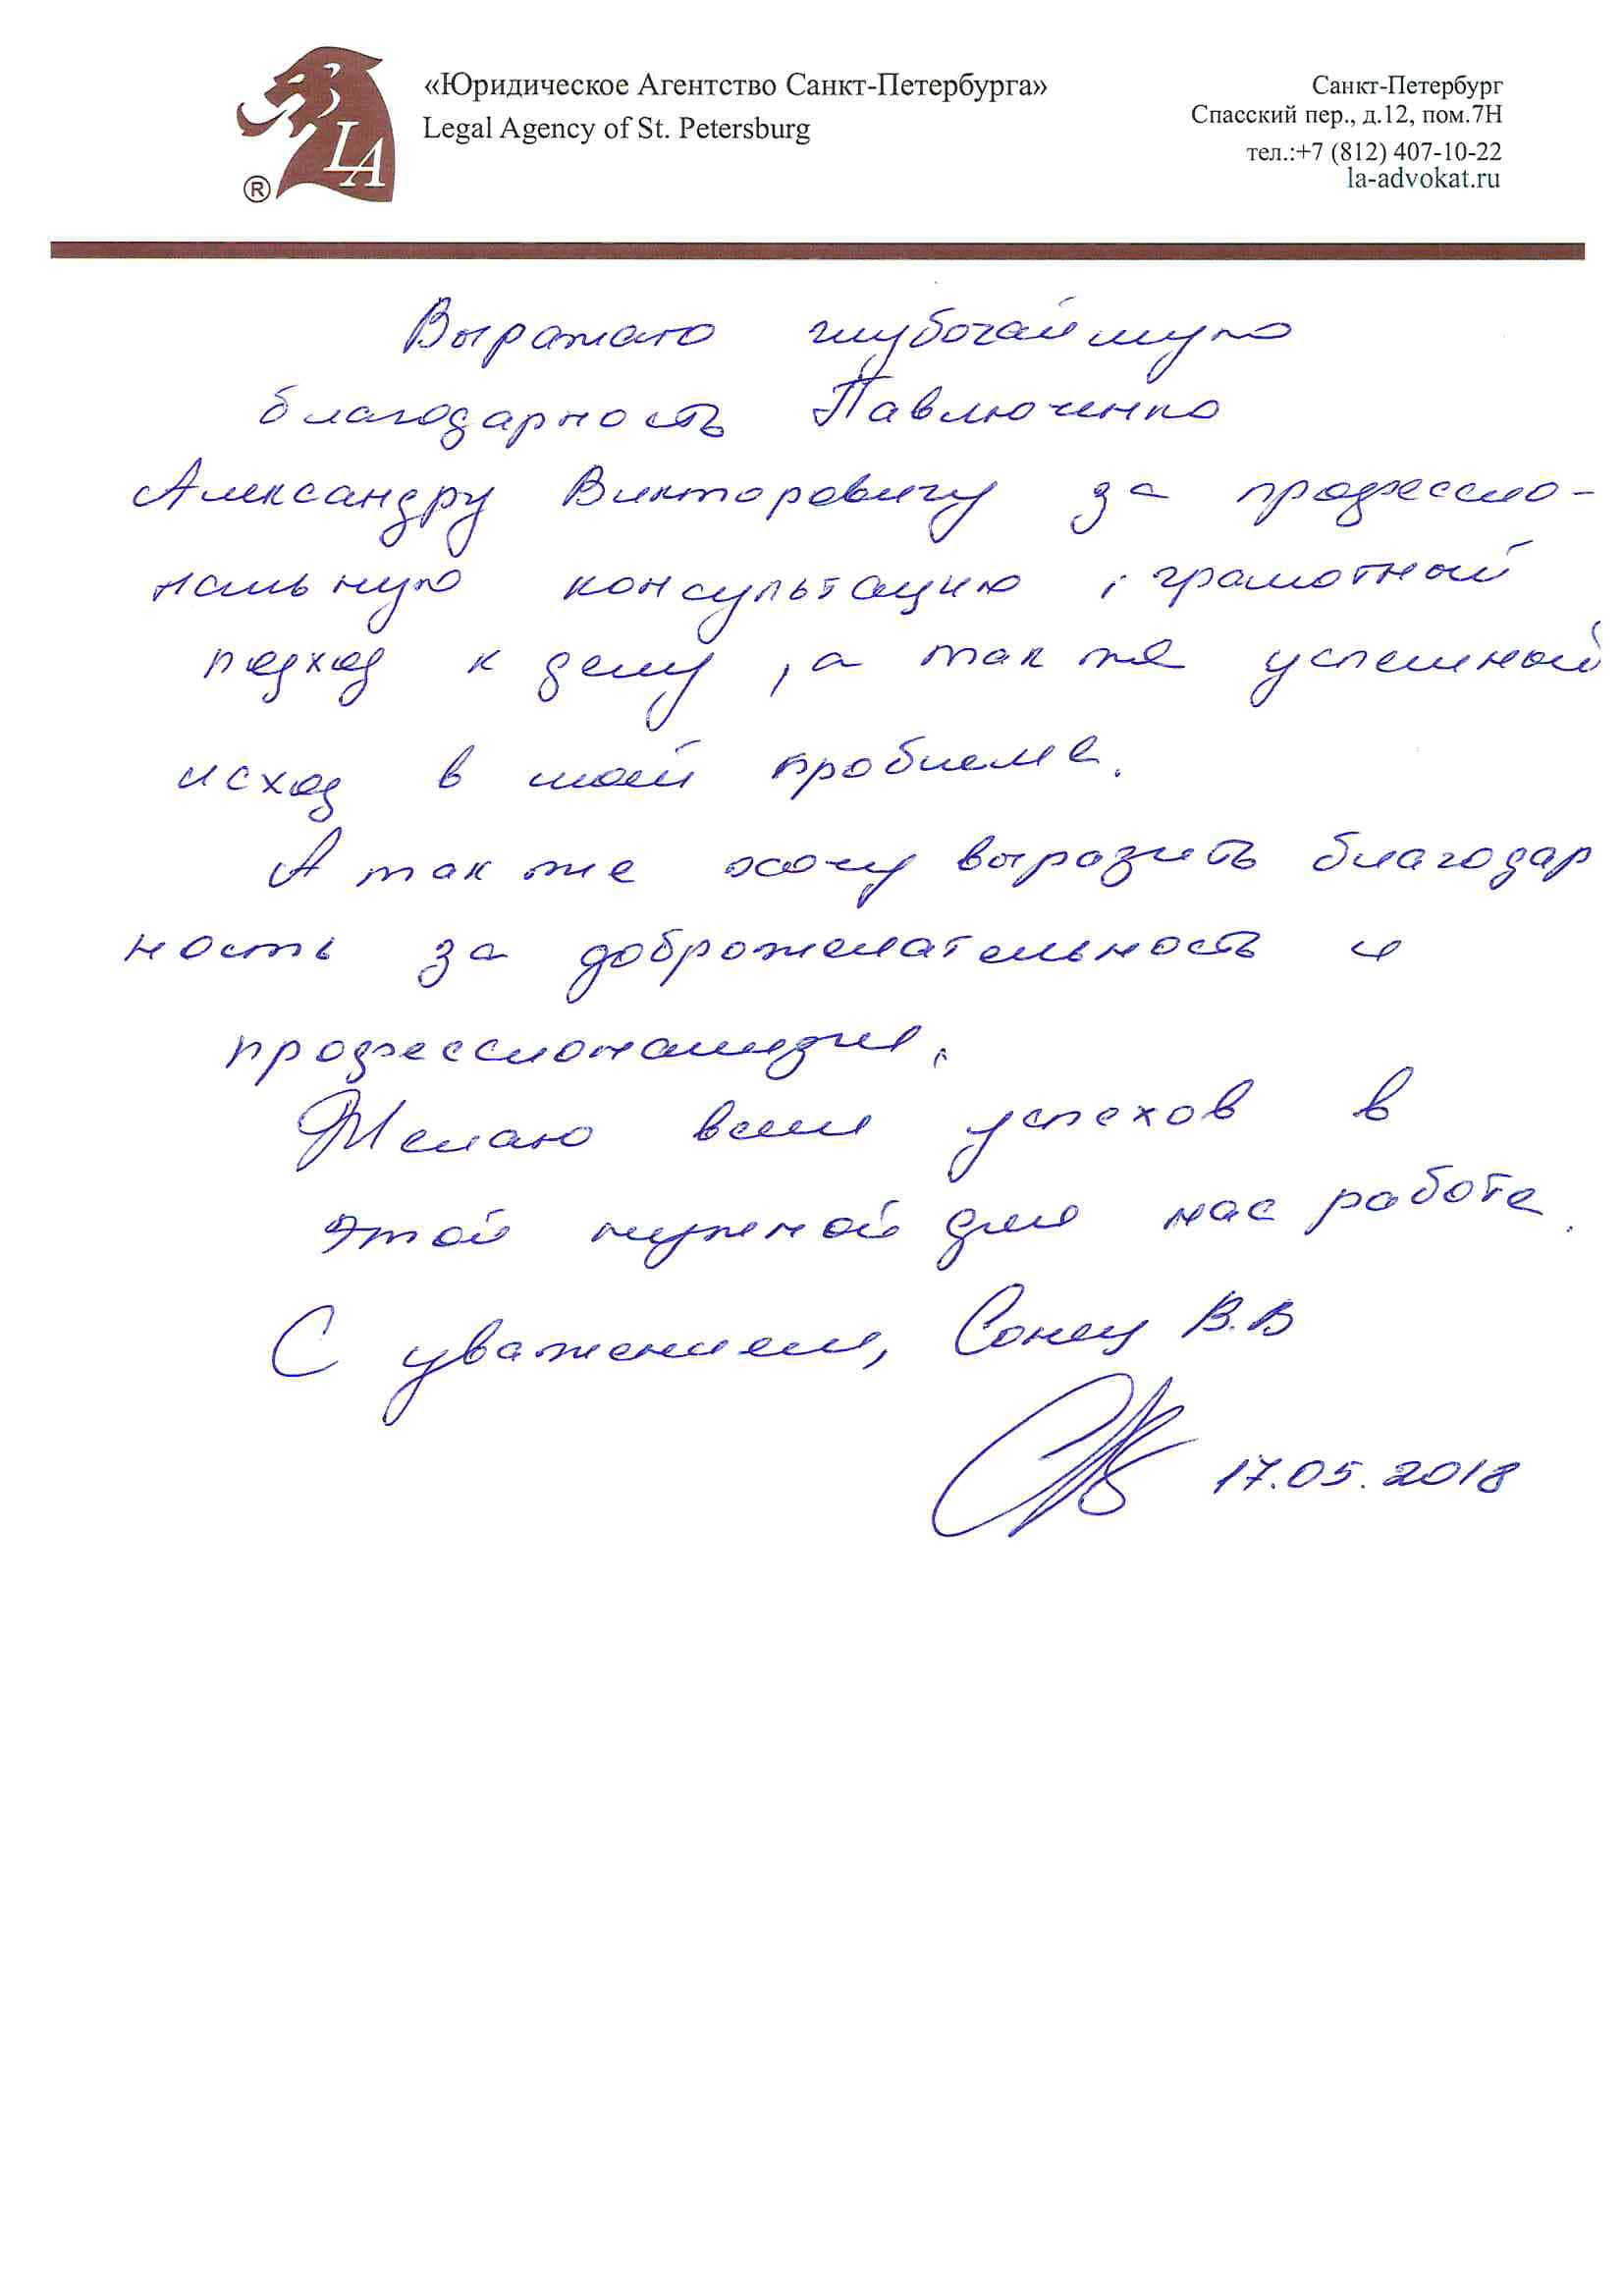 «Юридическое Агентство Санкт-Петербурга»
Legal Agency of St. Petersburg
Санкт-Петербург
Спасский пер., д.12, пом.7Н
тел.:+7 (812) 407-10-22
la-advokat.ru
LA
®
Выражаю глубочайшую
благодарность Павлюченко
Александру Викторовичу за профессио-
нальную консультацию, грамотный
подход к делу, а так же успешный
исход в моей проблеме.
А так же хочу выразить благодар
ность за доброжелательность и
профессионализм.
Желаю всем успехов в
этой нужной для нас работе.
С уважением, Сонец В.В
17.05.2018